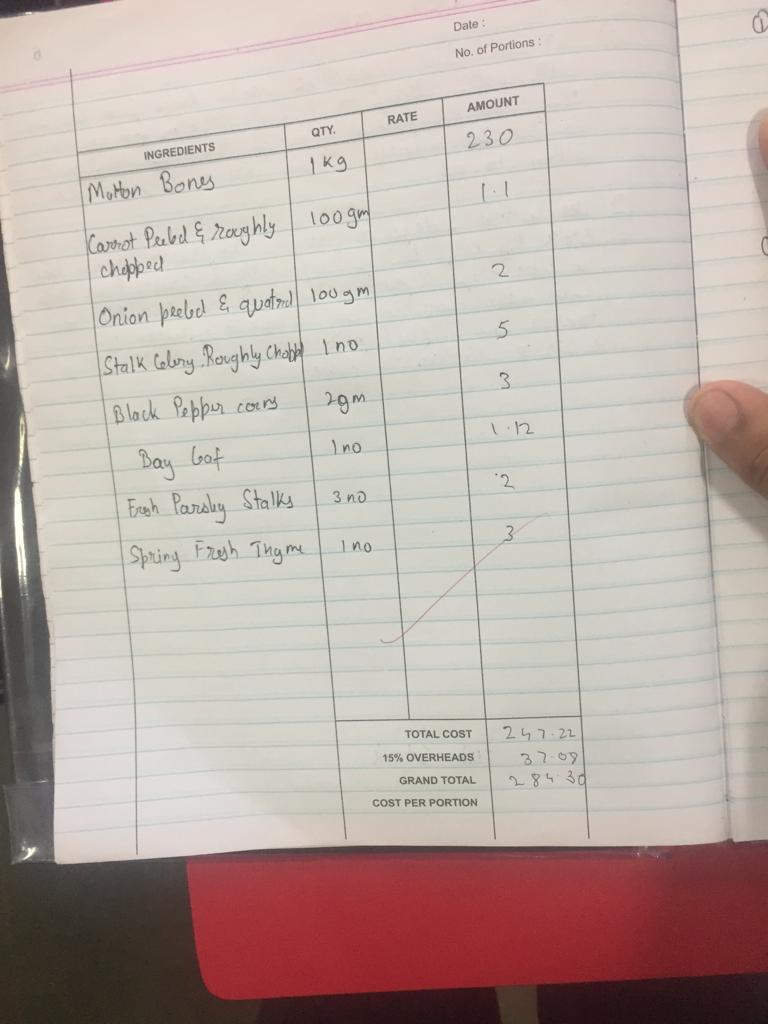 Date :
No. of Portions :
INGREDIENTS QTY. RATE AMOUNT
Mutton Bones 1 kg 230
Carrot Peeled & roughly 100 gm 1.1
chopped
Onion peeled & 100 gm 2
Stalk Celery, Roughly 1 no 5
Black Pepper corns 2gm 3
Bay leaf 1 no 1.12
Fresh Parsley Stalks 3 no 2
Spring Fresh Thyme 1 no 3
TOTAL COST 247.22
15% OVERHEADS 37.08
GRAND TOTAL 284.30
COST PER PORTION